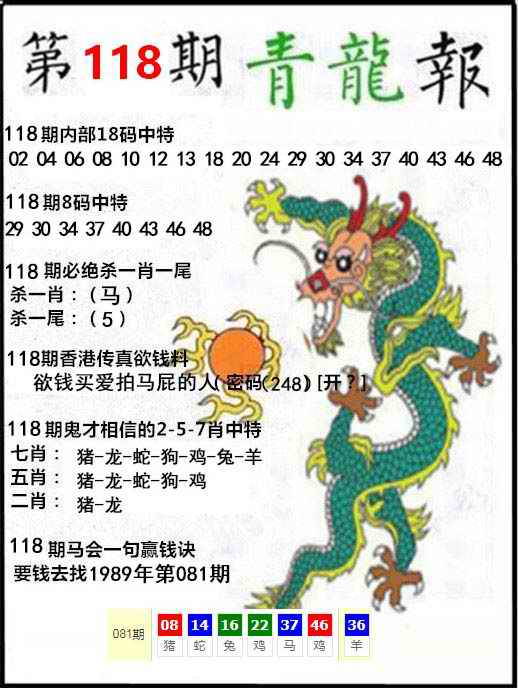 第118期 青龍報
118期内部18码中特
02 04 06 08 10 12 13 18 20 24 29 30 34 37 40 43 46 48
118期8码中特
29 30 34 37 40 43 46 48
118 期必绝杀一肖一尾
杀一肖：（马）
杀一尾：（5）
118期香港传真欲钱料
欲钱买爱拍马屁的人(密码(248) [开？]
118期鬼才相信的2-5-7肖中特
七肖： 猪-龙-蛇-狗-鸡-兔-羊
五肖： 猪-龙-蛇-狗-鸡
二肖： 猪-龙
118 期马会一句赢钱诀
要钱去找1989年第081期
081期 08 14 16 22 37 46 36
猪 蛇 兔 鸡 马 鸡 羊